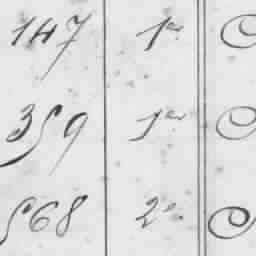 147 1er
359 1er
568 2e